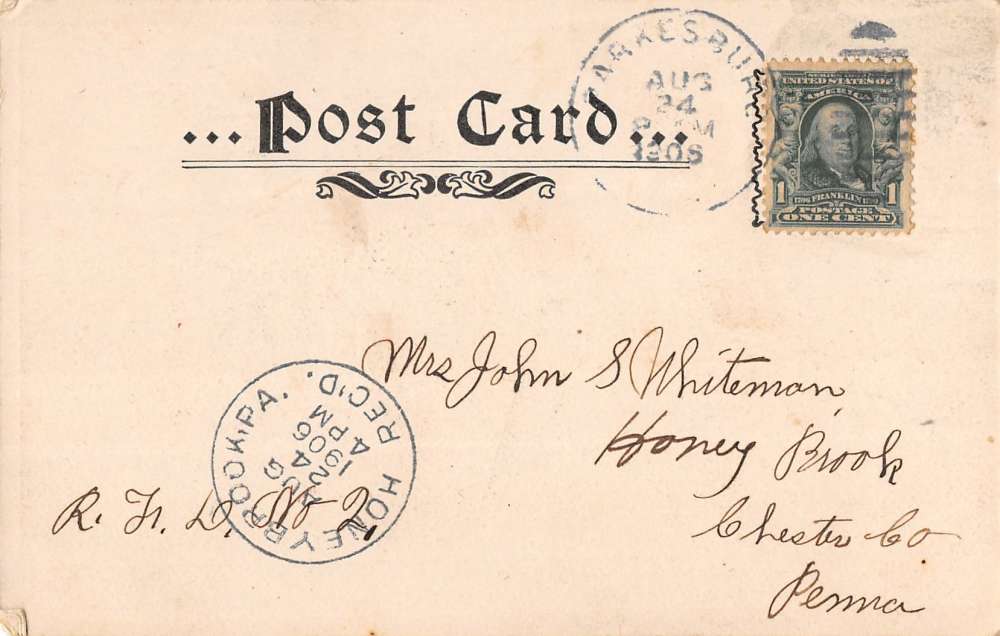 ... Post Card ...
AUG
24
1906
SERIES
UNITED STATES OF
AMERICA
1 FRANKLIN 1
POSTAGE
ONE CENT
Mrs John S Whiteman
Honey Brook
R. F. D. No 2,
Chester Co
Penna
HONEYBROOK, PA.
REC'D.
AUG
24
4 PM
1906